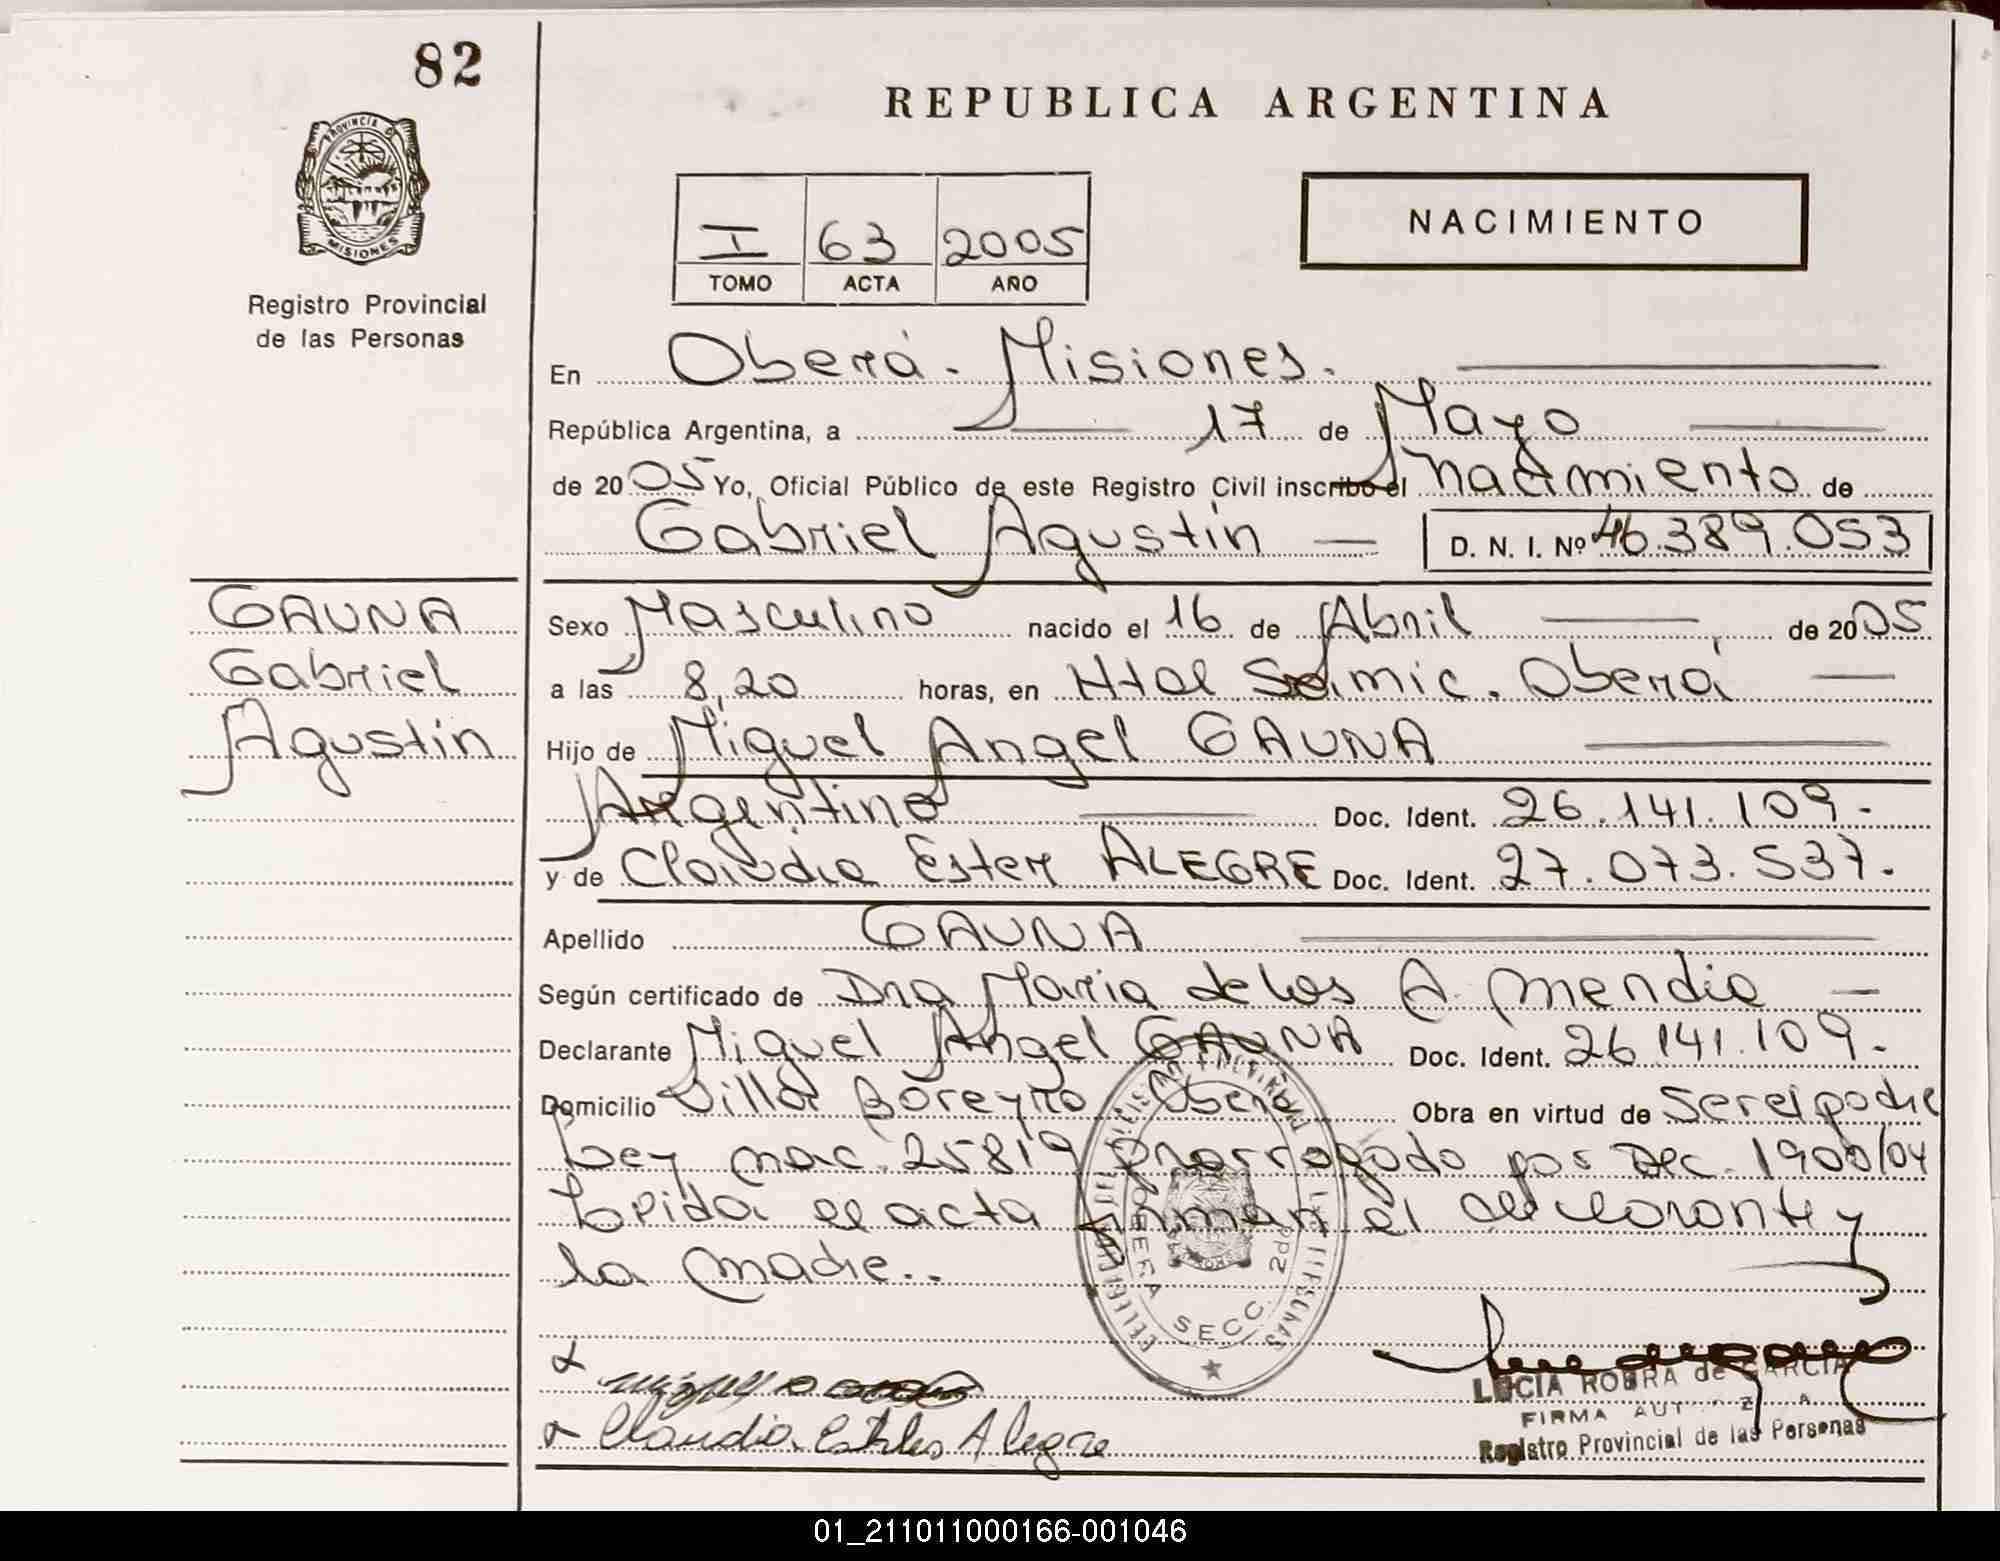 82
REPUBLICA ARGENTINA
PROVINCIA DE
MISIONES
Registro Provincial
de las Personas
NACIMIENTO
I 63 2005
TOMO ACTA AÑO
En Oberá - Misiones.
República Argentina, a 17 de Mayo
de 2005 Yo, Oficial Público de este Registro Civil inscribo el nacimiento de
Gabriel Agustín D. N. I. Nº 46.389.053
GAUNA
Gabriel
Agustín
Sexo Masculino nacido el 16 de Abril de 2005
a las 8,20 horas, en Htal Samic. Oberá
Hijo de Miguel Angel GAUNA
Argentino Doc. Ident. 26.141.109.
y de Claudia Ester ALEGRE Doc. Ident. 27.073.537.
Apellido GAUNA
Según certificado de Dra Maria de los A. Mendia
Declarante Miguel Angel GAUNA Doc. Ident. 26.141.109.
Domicilio Villa Barreyro Oberá Obra en virtud de ser el padre
Ley nac. 25819 prorrogado por Dec. 1900/04
Leida el acta firman el declarante y
la madre..
OBERA SECC. 2da
Claudia Alegre
LUCIA ROBRA de GARCIA
FIRMA
Registro Provincial de las Personas
01_211011000166-001046